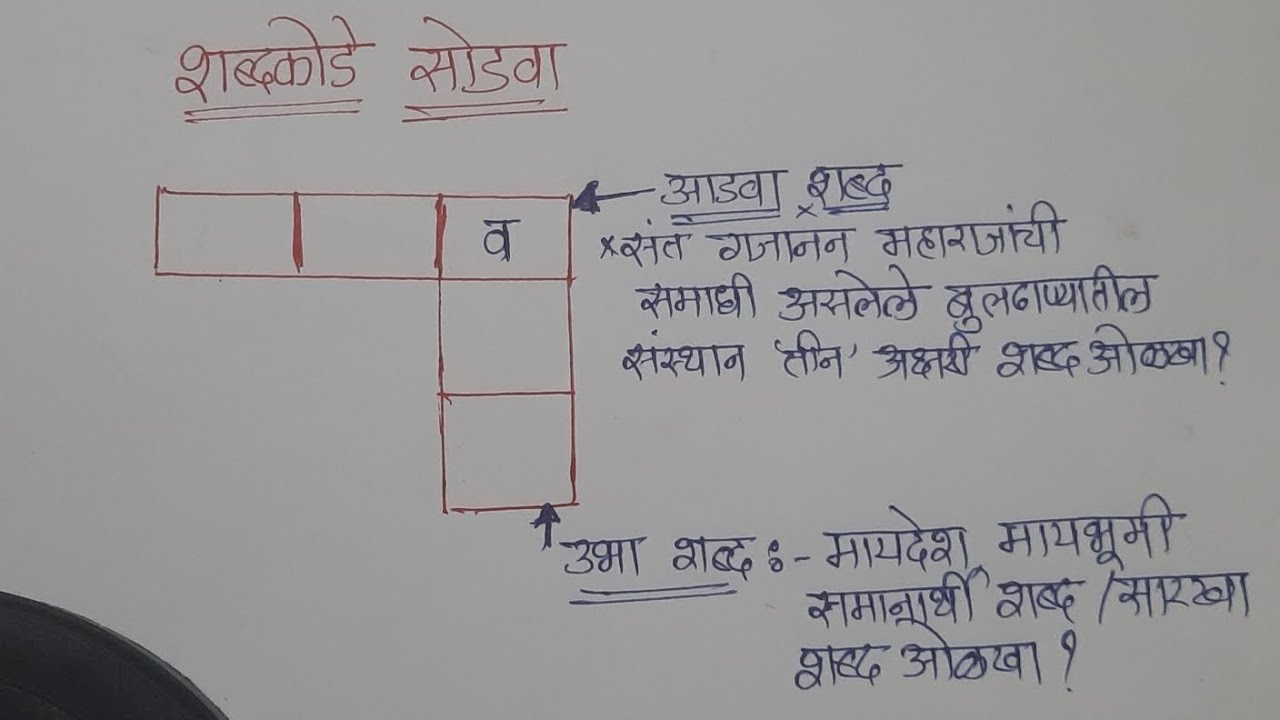 शब्दकोडे सोडवा
व
आडवा शब्द
*संत गजानन महाराजांची
समाधी असलेले बुलढाण्यातील
संस्थान 'तीन' अक्षरी शब्द ओळखा?
उभा शब्द :- मायदेश, मायभूमी
समानार्थी शब्द / सारखा
शब्द ओळखा?